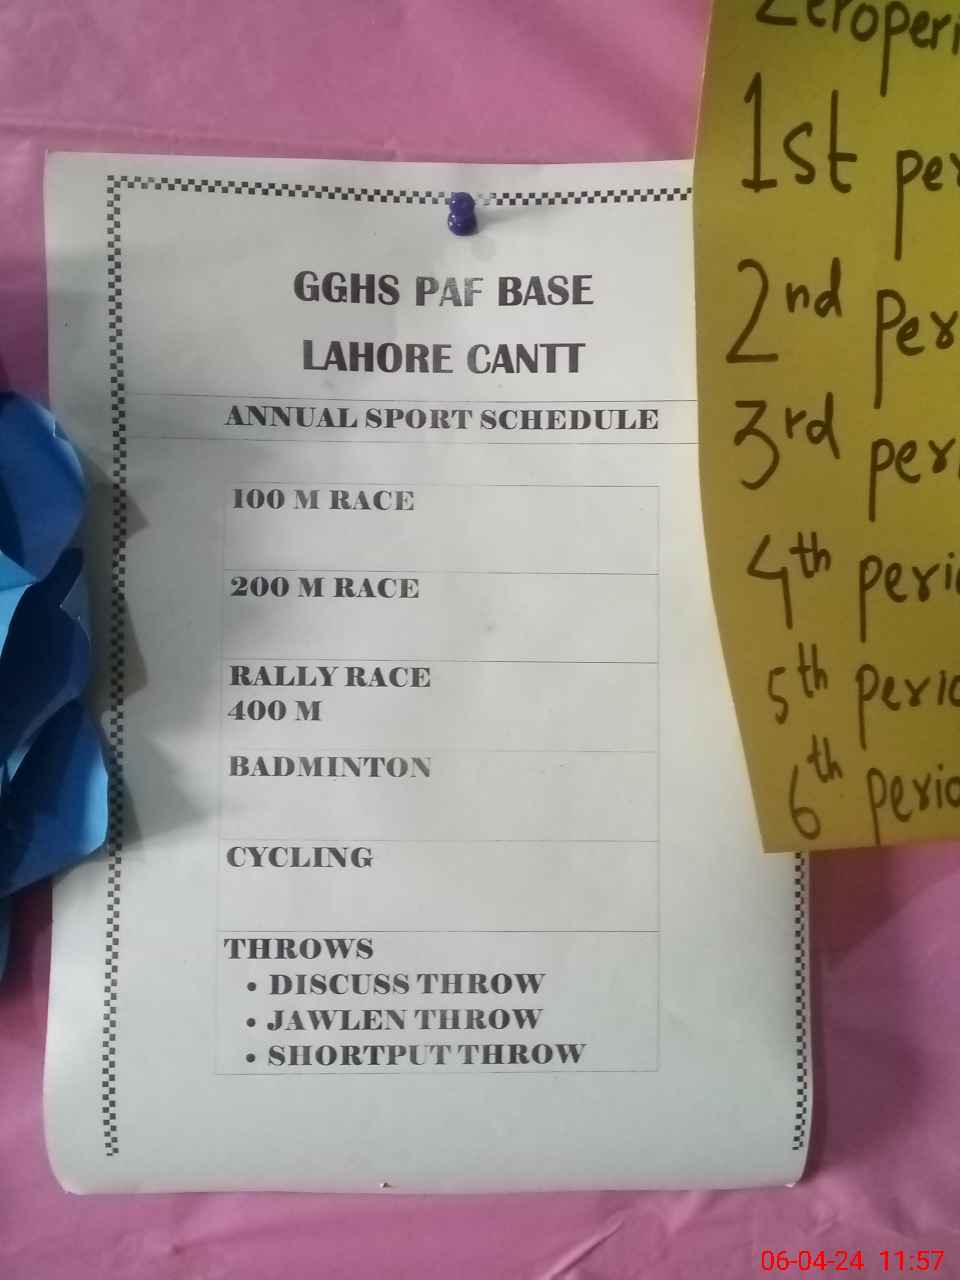 GGHS PAF BASE
LAHORE CANTT
ANNUAL SPORT SCHEDULE
100 M RACE
200 M RACE
RALLY RACE
400 M
BADMINTON
CYCLING
THROWS
• DISCUSS THROW
• JAWLEN THROW
• SHORTPUT THROW
Zeroperi
1st per
2nd per
3rd per
4th perio
5th perio
6th perio
06-04-24 11:57